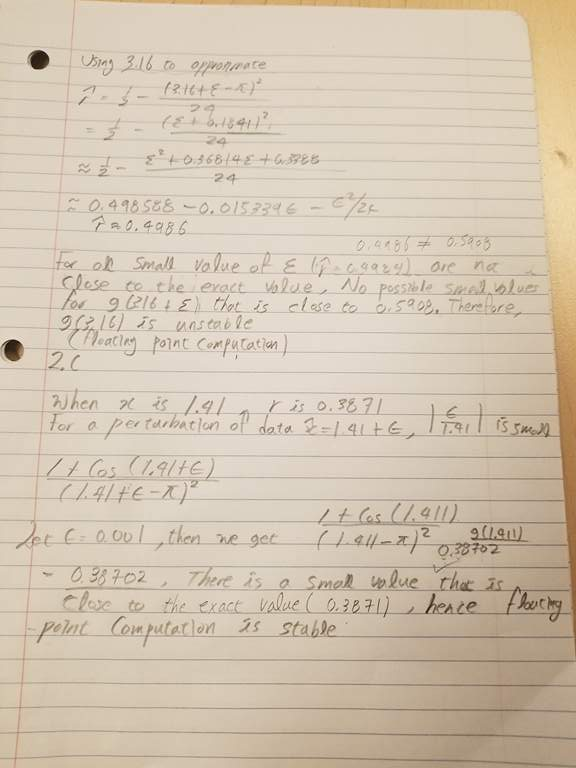 Using 3.16 to approximate
r̂ = 1/2 - (3.16+ε-π)²/24
= 1/2 - (ε + 0.1841)²/24
≈ 1/2 - /24
≈ 0.498588 - 0.0153396 - ε²/24
r̂ ≈ 0.4986
0.4986 ≠ 0.5908
For all small value of ε are not
close to the exact value, No possible small values
for g(3.16 + ε) that is close to 0.5908. Therefore,
g(3.16) is unstable
(floating point computation)
2.c
When x is 1.41, r is 0.3871
For a perturbation of data x̂ = 1.41 + ε, |ε/1.41| is small
1 + cos(1.41+ε)/(1.41+ε-π)²
Let ε = 0.001, then we get 1 + cos(1.411)/(1.411-π)² g(1.411)
0.38702
= 0.38702, There is a small value that is
close to the exact value (0.3871), hence floating
-point computation is stable